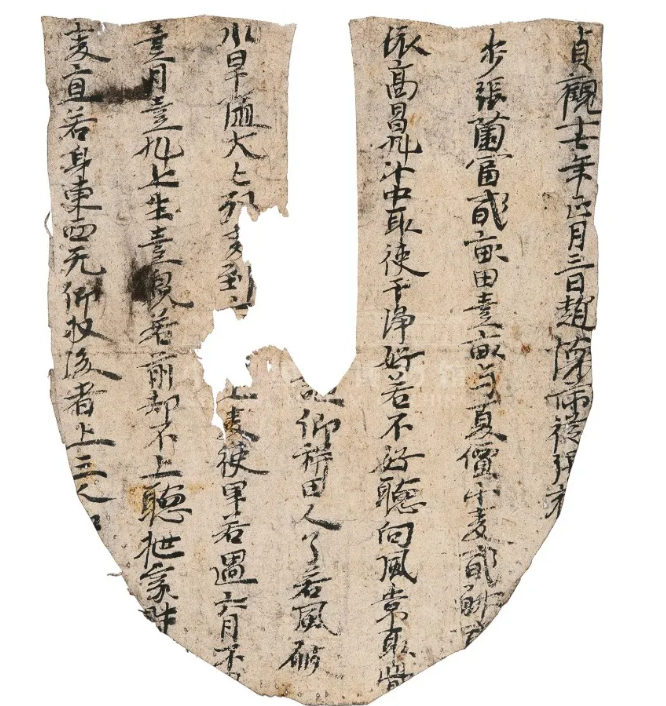 貞觀十七年正月三日趙懷滿從張歡
步張薗富貳畝田壹畝与夏價小麥貳斛
依高昌斛斗中取使干淨好若不好聽向風常取
仰耕田人了若風破
水旱隨大匕列麥到
麥使畢若過六月不
壹月壹斛上生壹兜若前却不上聽抴家財
麥直若身東西无仰收後者上三人